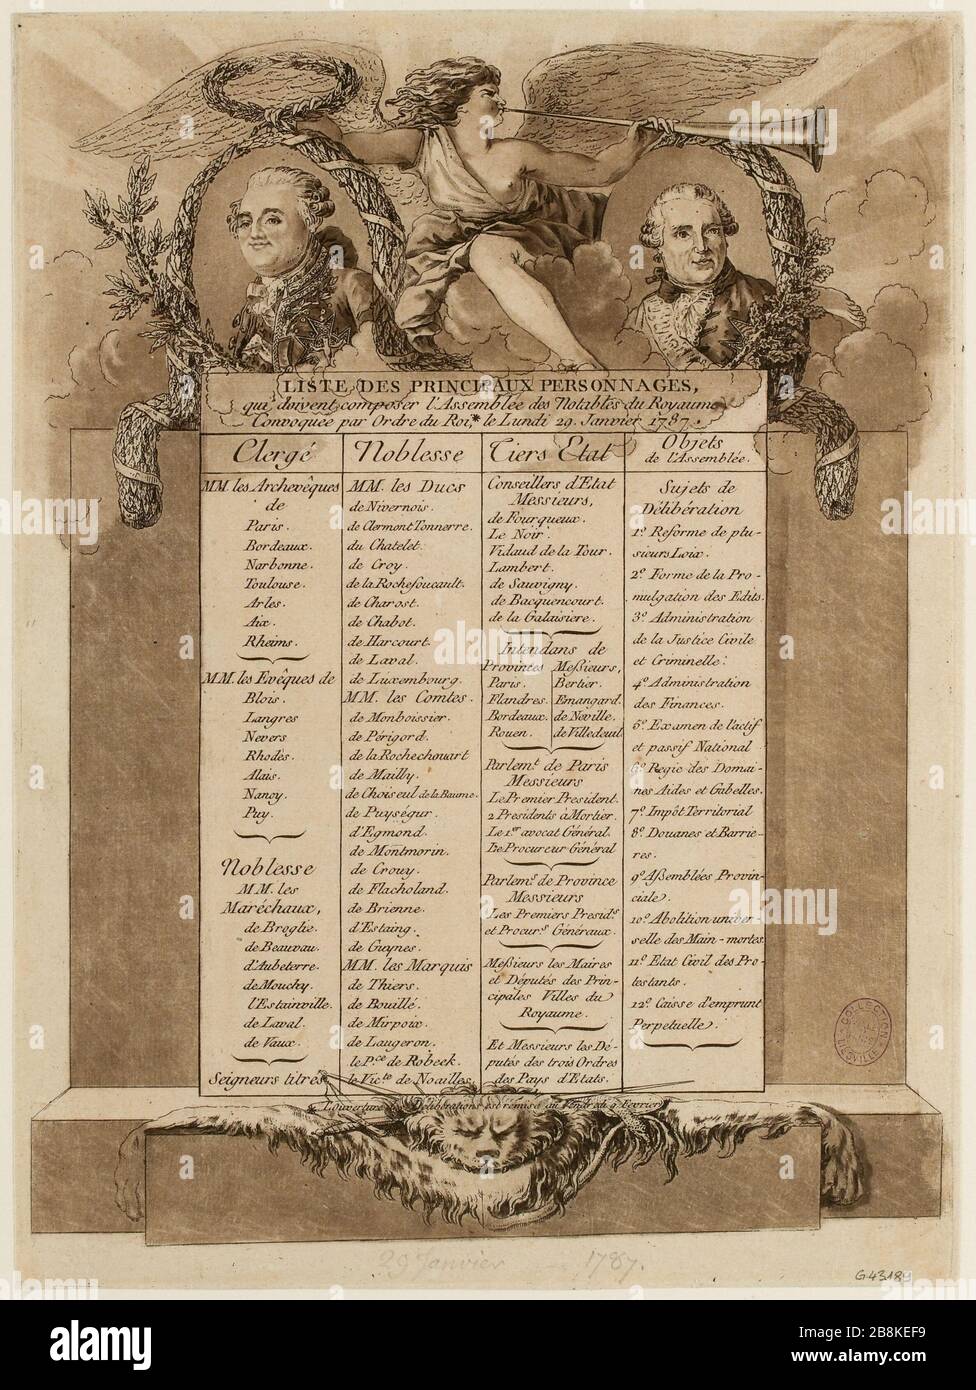 LISTE DES PRINCIPAUX PERSONNAGES,
qui doivent composer l'Assemblée des Notables du Royaume
Convoquée par Ordre du Roi,* le Lundi 29. Janvier 1787.
Clergé
MM. les Archevêques
de
Paris.
Bordeaux.
Narbonne.
Toulouse.
Arles.
Aix.
Rheims.
MM. les Evêques de
Blois.
Langres
Nevers
Rhodès.
Alais.
Nancy.
Puy.
Noblesse
MM. les
Maréchaux,
de Broglie.
de Beauvau.
d'Aubeterre.
de Mouchy.
l'Estainville.
de Laval.
de Vaux.
Seigneurs titres
Noblesse
MM. les Ducs
de Nivernois.
de Clermont Tonnerre.
du Chatelet.
de Croy.
de la Rochefoucault.
de Charost.
de Chabot.
de Harcourt.
de Laval.
de Luxembourg.
MM. les Comtes.
de Monboissier.
de Périgord.
de la Rochechouart
de Mailly.
de Choiseul de la Baume.
de Puységur.
d'Egmond.
de Montmorin.
de Crouy.
de Flacholand.
de Brienne.
d'Estaing.
de Guynes.
MM. les Marquis
de Thiers.
de Bouillé.
de Mirpoix.
de Laugeron.
le P.ce de Robeek.
le Vic.te de Noailles.
Tiers Etat
Conseillers d'Etat
Messieurs,
de Fourqueux.
Le Noir.
Vidaud de la Tour.
Lambert.
de Sauvigny.
de Bacquencourt.
de la Galaisiere.
Intendans de
Provintes Meßieurs,
Paris. Bertier.
Flandres. Emangard.
Bordeaux. de Neville.
Rouen. de Villedeuil
Parlem.t de Paris
Messieurs
Le Premier President.
2 Presidents à Mortier.
Le 1.er avocat Général.
Le Procureur Général
Parlem.s de Province
Messieurs
Les Premiers Presid.ts
et Procur.s Généraux.
Meßieurs les Maires
et Députés des Prin-
cipales Villes du
Royaume.
Et Messieurs les Dé-
putés des trois Ordres
des Pays d'Etats.
Objets
de l'Assemblée.
Sujets de
Délibération
1.º Reforme de plu-
sieurs Loix.
2.º Forme de la Pro-
mulgation des Edits.
3.º Administration
de la Justice Civile
et Criminelle.
4.º Administration
des Finances.
5.º Examen de l'actif
et passif National
6.º Regie des Domai-
nes Aides et Gabelles.
7.º Impôt Territorial
8.º Douanes et Barrie-
res.
9.º Aßemblées Provin-
ciale.
10.º Abolition univer-
selle des Main-mortes.
11.º Etat Civil des Pro-
testants.
12.º Caisse d'emprunt
Perpetuelle.
* L'ouverture des Délibérations est remise au Vendredi 9. Fevrier
29 Janvier 1787.
G43189
alamy
Image ID: 2B8KEF9
www.alamy.com